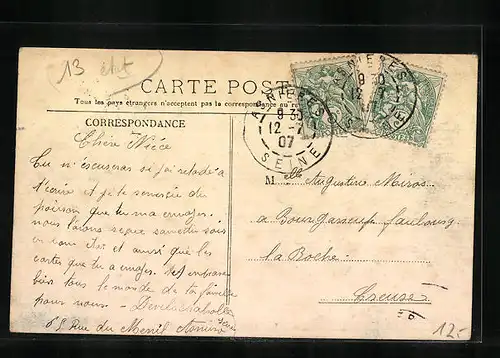 13
CARTE POSTALE
Tous les pays étrangers n'acceptent pas la correspondance au
CORRESPONDANCE
ASNIERES
9 30
12 - 7
07
SEINE
ASNIERES
9 30
12 - 7
SEINE
Chère Nièce
Tu m'excuseras si j'ai retardé a
t'écrire et je te remercie du
poisson que tu m'a envoyer.
nous l'avons reçue samedi soir
en bon état et aussi que les
cartes que tu a envoyer.
bien tous le monde de ta famille
pour nous -
Rue du Menil Asnières
Melle Augustine
a Bourganeuf faubourg
la Roche
Creuse
12.-